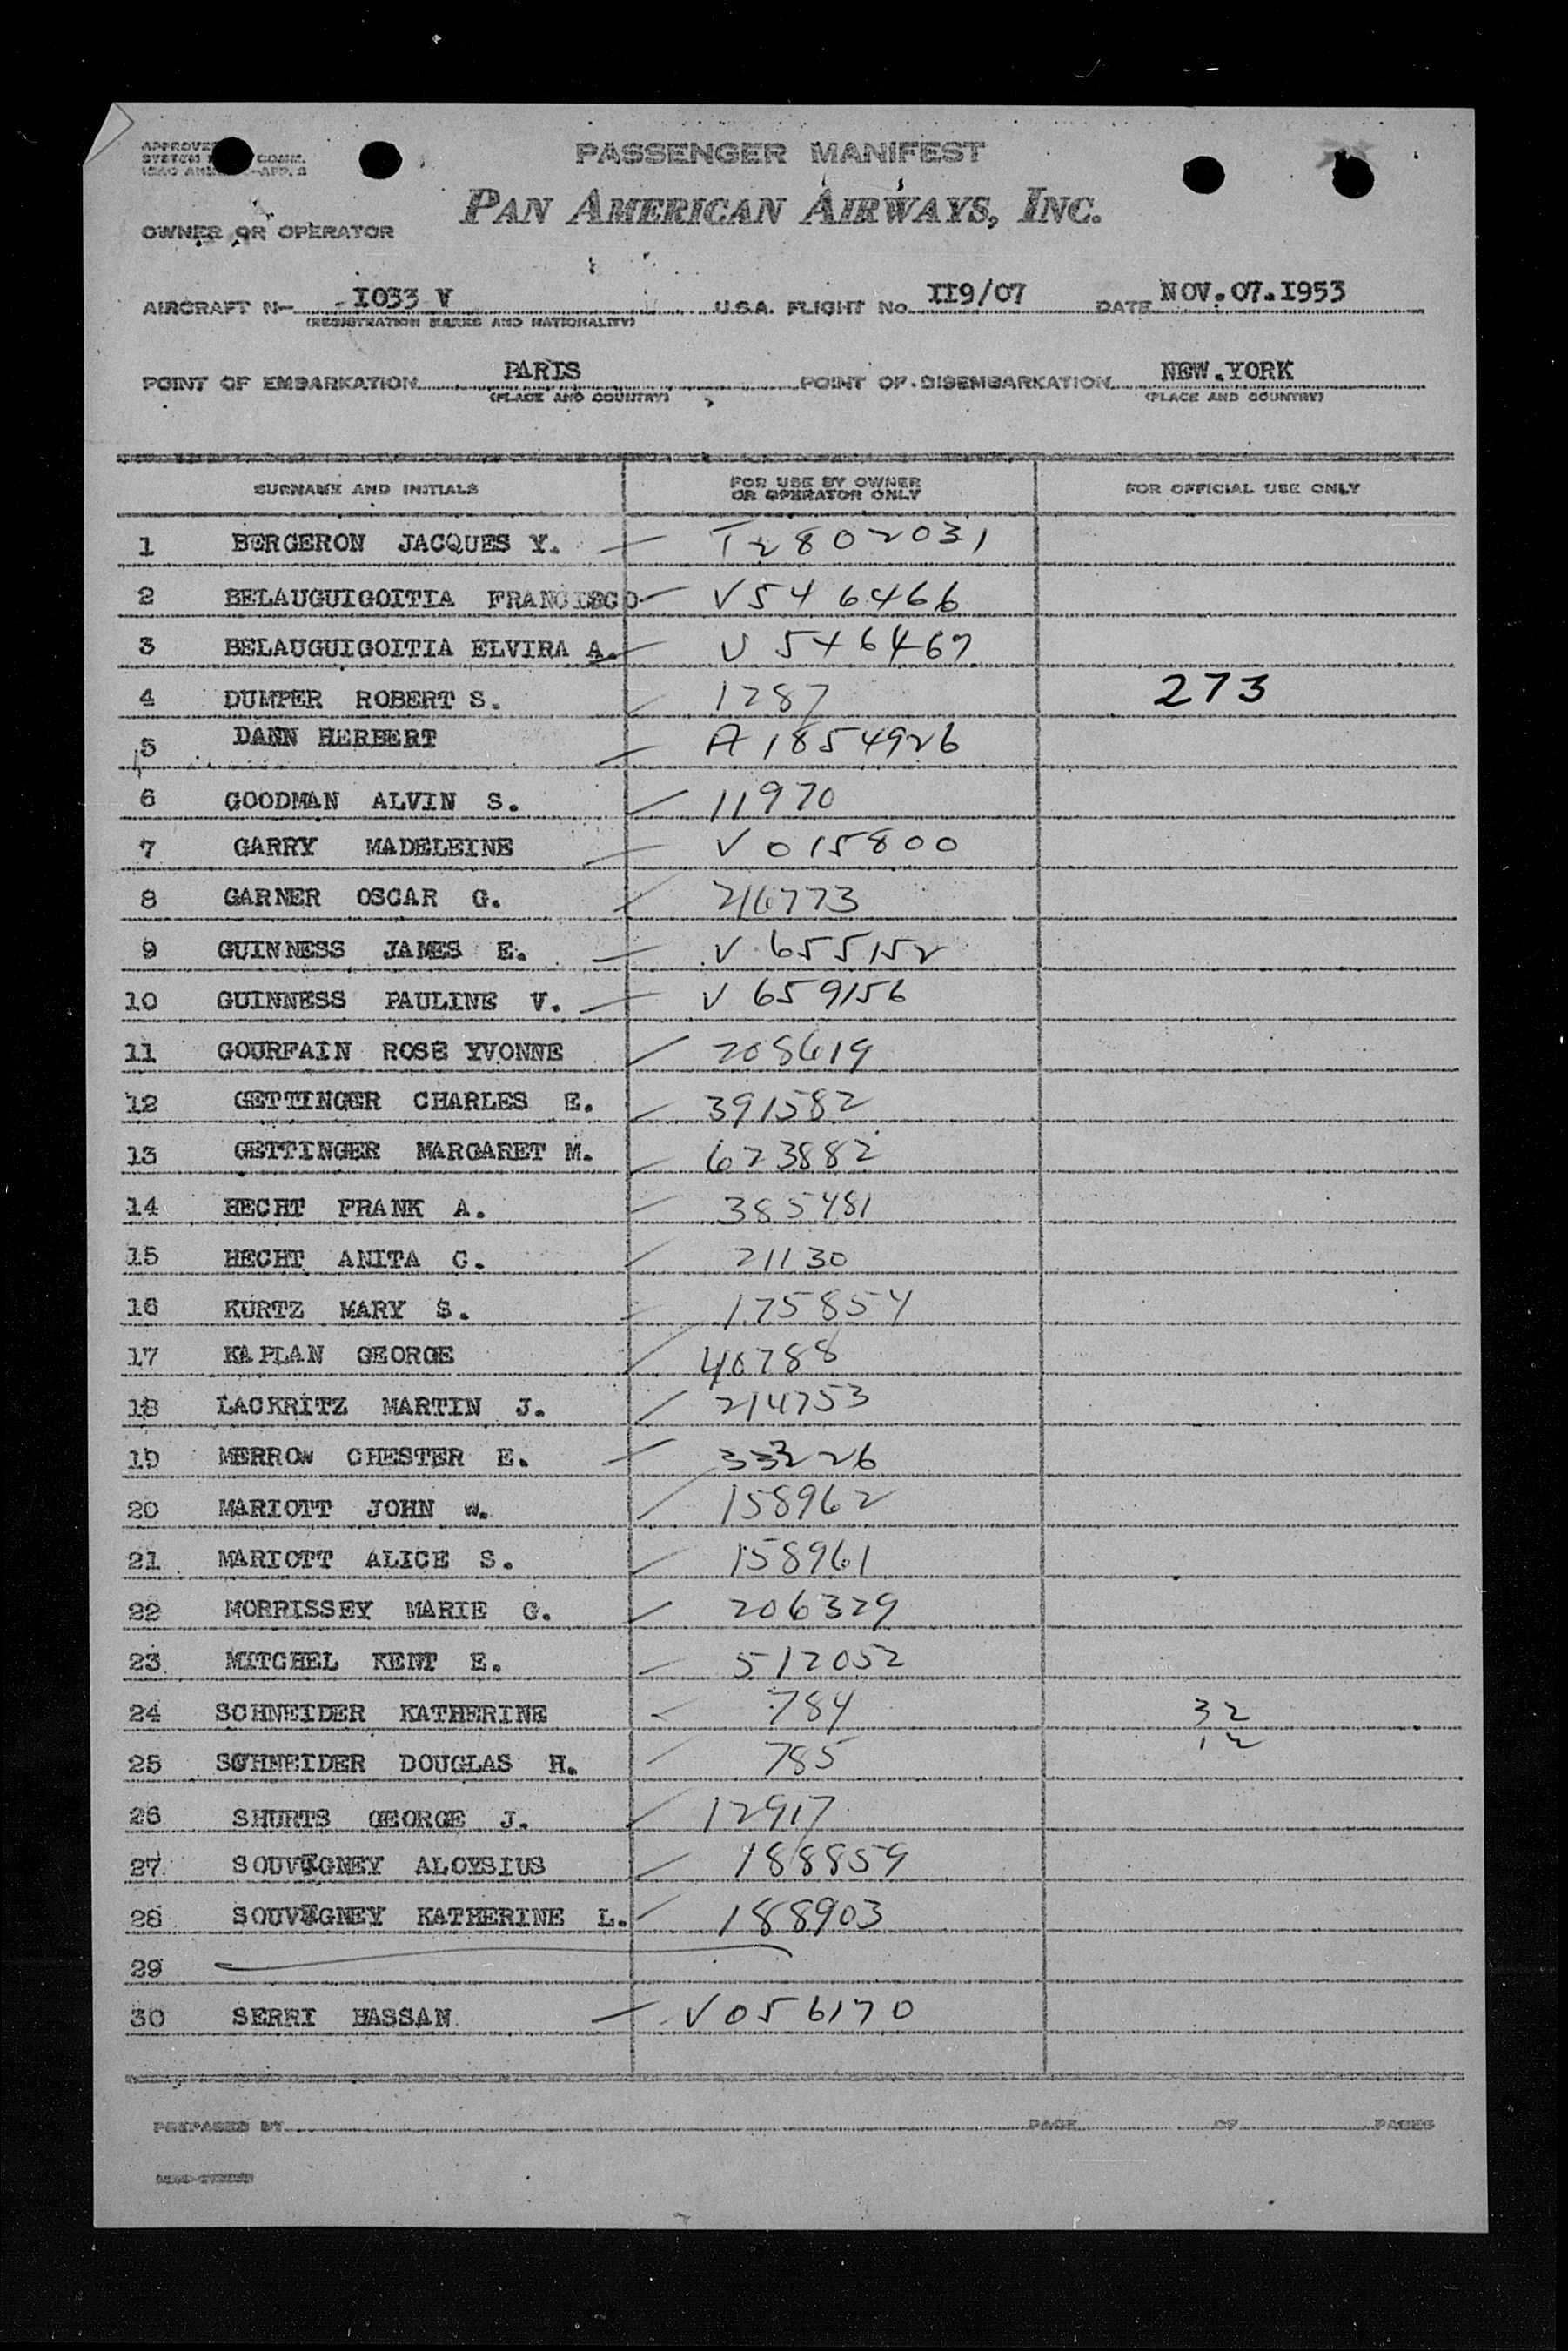 PASSENGER MANIFEST
PAN AMERICAN AIRWAYS, INC.
OWNER OR OPERATOR
AIRCRAFT N— I033 V U.S.A. FLIGHT No. II9/07 DATE NOV.07.I953
(REGISTRATION MARKS AND NATIONALITY)
POINT OF EMBARKATION PARIS POINT OF DISEMBARKATION NEW.YORK
(PLACE AND COUNTRY) (PLACE AND COUNTRY)
SURNAME AND INITIALS FOR USE BY OWNER OR OPERATOR ONLY FOR OFFICIAL USE ONLY
1 BERGERON JACQUES Y. T2802031
2 BELAUGUIGOITIA FRANCISCO V546466
3 BELAUGUIGOITIA ELVIRA A. V 546467
4 DUMPER ROBERT S. 1287 273
5 DANN HERBERT A1854926
6 GOODMAN ALVIN S. 11970
7 GARRY MADELEINE V015800
8 GARNER OSCAR G. 216773
9 GUINNESS JAMES E. V 655152
10 GUINNESS PAULINE V. V 659156
11 GOURFAIN ROSE YVONNE 208619
12 GETTINGER CHARLES E. 391582
13 GETTINGER MARGARET M. 623882
14 HECHT FRANK A. 385481
15 HECHT ANITA C. 21130
16 KURTZ MARY S. 175854
17 KAPLAN GEORGE 40788
18 LACKRITZ MARTIN J. 214753
19 MERROW CHESTER E. 33226
20 MARIOTT JOHN W. 158962
21 MARIOTT ALICE S. 158961
22 MORRISSEY MARIE G. 206329
23 MITCHEL KENT E. 512052
24 SCHNEIDER KATHERINE 784 32
25 SCHNEIDER DOUGLAS H. 785 12
26 SHURTS GEORGE J. 12917
27 SOUVIGNEY ALOYSIUS 188859
28 SOUVIGNEY KATHERINE L. 188903
29
30 SERRI HASSAN V056170
PREPARED BY PAGE OF PAGES